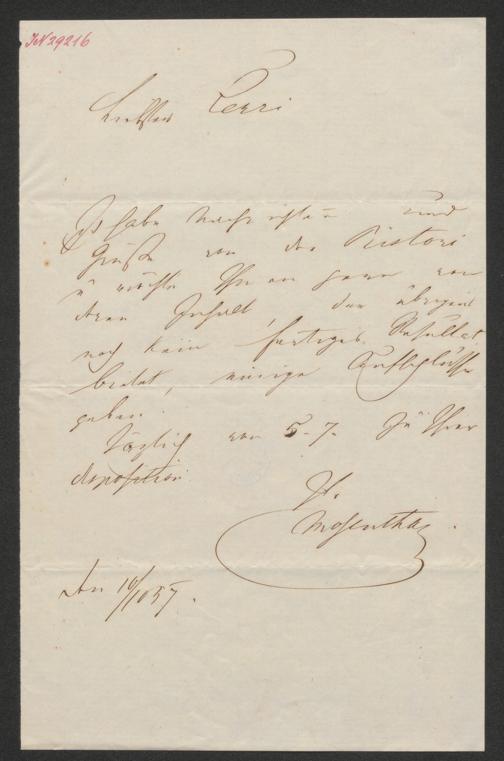 IN 29216
Liebster Cerri
Ich habe Nachrichten und
Grüße von der Ristori
u möchte Ihnen gern von
deren Inhalt, der übrigens
noch kein fertiges Resultat
bietet, einige Aufschlüsse
geben.
Täglich von 5-7. zu Ihrer
disposition
Ihr
Mosenthal.
Den 10/10 57.